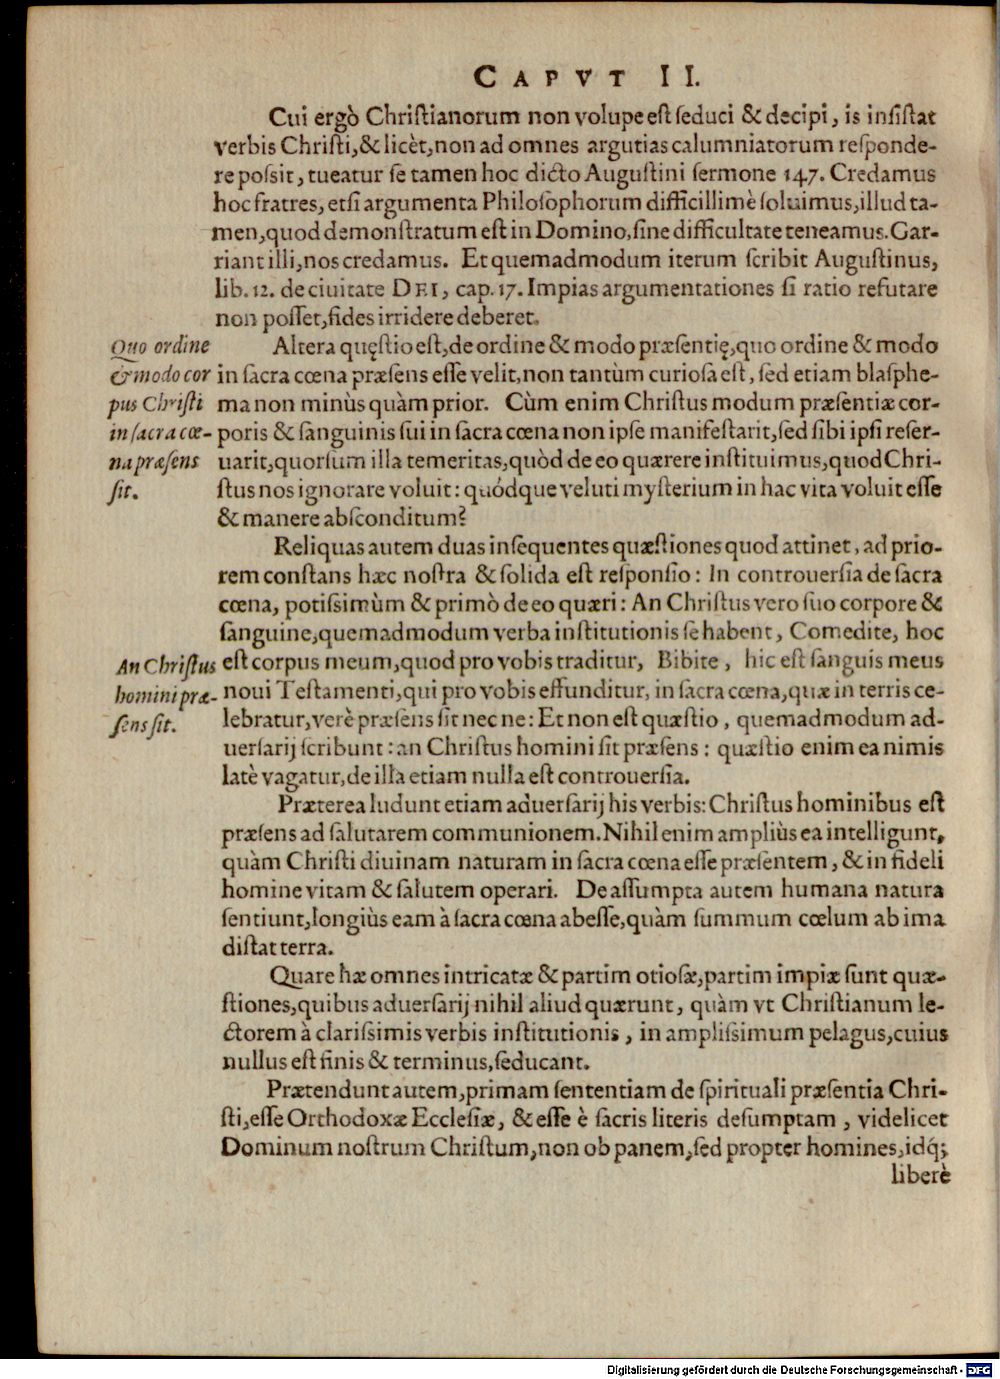 CAPVT II.
Cui ergò Chriſtianorum non volupe eſt ſeduci & decipi, is inſiſtat
verbis Chriſti, & licèt, non ad omnes argutias calumniatorum reſponde-
re poſsit, tueatur ſe tamen hoc dicto Auguſtini ſermone 147. Credamus
hoc fratres, etſi argumenta Philoſophorum difficillimè ſoluimus, illud ta-
men, quod demonſtratum eſt in Domino, ſine difficultate teneamus. Gar-
riant illi, nos credamus. Et quemadmodum iterum ſcribit Auguſtinus,
lib. 12. de ciuitate DEI, cap. 17. Impias argumentationes ſi ratio refutare
non poſſet, fides irridere deberet.
Quo ordine
& modo cor
pus Chriſti
in ſacra cœ-
na præſens
ſit.
Altera quęſtio eſt, de ordine & modo præſentię, quo ordine & modo
in ſacra cœna præſens eſſe velit, non tantùm curioſa eſt, ſed etiam blaſphe-
ma non minùs quàm prior. Cùm enim Chriſtus modum præſentiæ cor-
poris & ſanguinis ſui in ſacra cœna non ipſe manifeſtarit, ſed ſibi ipſi reſer-
uarit, quorſum illa temeritas, quòd de eo quærere inſtituimus, quod Chri-
ſtus nos ignorare voluit: quódque veluti myſterium in hac vita voluit eſſe
& manere abſconditum?
Reliquas autem duas inſequentes quæſtiones quod attinet, ad prio-
rem conſtans hæc noſtra & ſolida eſt reſponſio: In controuerſia de ſacra
cœna, potiſsimùm & primò de eo quæri: An Chriſtus vero ſuo corpore &
ſanguine, quemadmodum verba inſtitutionis ſe habent, Comedite, hoc
eſt corpus meum, quod pro vobis traditur, Bibite, hic eſt ſanguis meus
noui Teſtamenti, qui pro vobis effunditur, in ſacra cœna, quæ in terris ce-
lebratur, verè præſens ſit nec ne: Et non eſt quæſtio, quemadmodum ad-
uerſarij ſcribunt: an Chriſtus homini ſit præſens: quæſtio enim ea nimis
latè vagatur, de illa etiam nulla eſt controuerſia.
An Chriſtus
homini præ-
ſens ſit.
Præterea ludunt etiam aduerſarij his verbis: Chriſtus hominibus eſt
præſens ad ſalutarem communionem. Nihil enim ampliùs ea intelligunt,
quàm Chriſti diuinam naturam in ſacra cœna eſſe præſentem, & in fideli
homine vitam & ſalutem operari. De aſſumpta autem humana natura
ſentiunt, longiùs eam à ſacra cœna abeſſe, quàm ſummum cœlum ab ima
diſtat terra.
Quare hæ omnes intricatæ & partim otioſæ, partim impiæ ſunt quæ-
ſtiones, quibus aduerſarij nihil aliud quærunt, quàm vt Chriſtianum le-
ctorem à clariſsimis verbis inſtitutionis, in ampliſsimum pelagus, cuius
nullus eſt finis & terminus, ſeducant.
Prætendunt autem, primam ſententiam de ſpirituali præſentia Chri-
ſti, eſſe Orthodoxæ Eccleſiæ, & eſſe è ſacris literis deſumptam, videlicet
Dominum noſtrum Chriſtum, non ob panem, ſed propter homines, idq́;
liberè
Digitalisierung gefördert durch die Deutsche Forschungsgemeinschaft - DFG